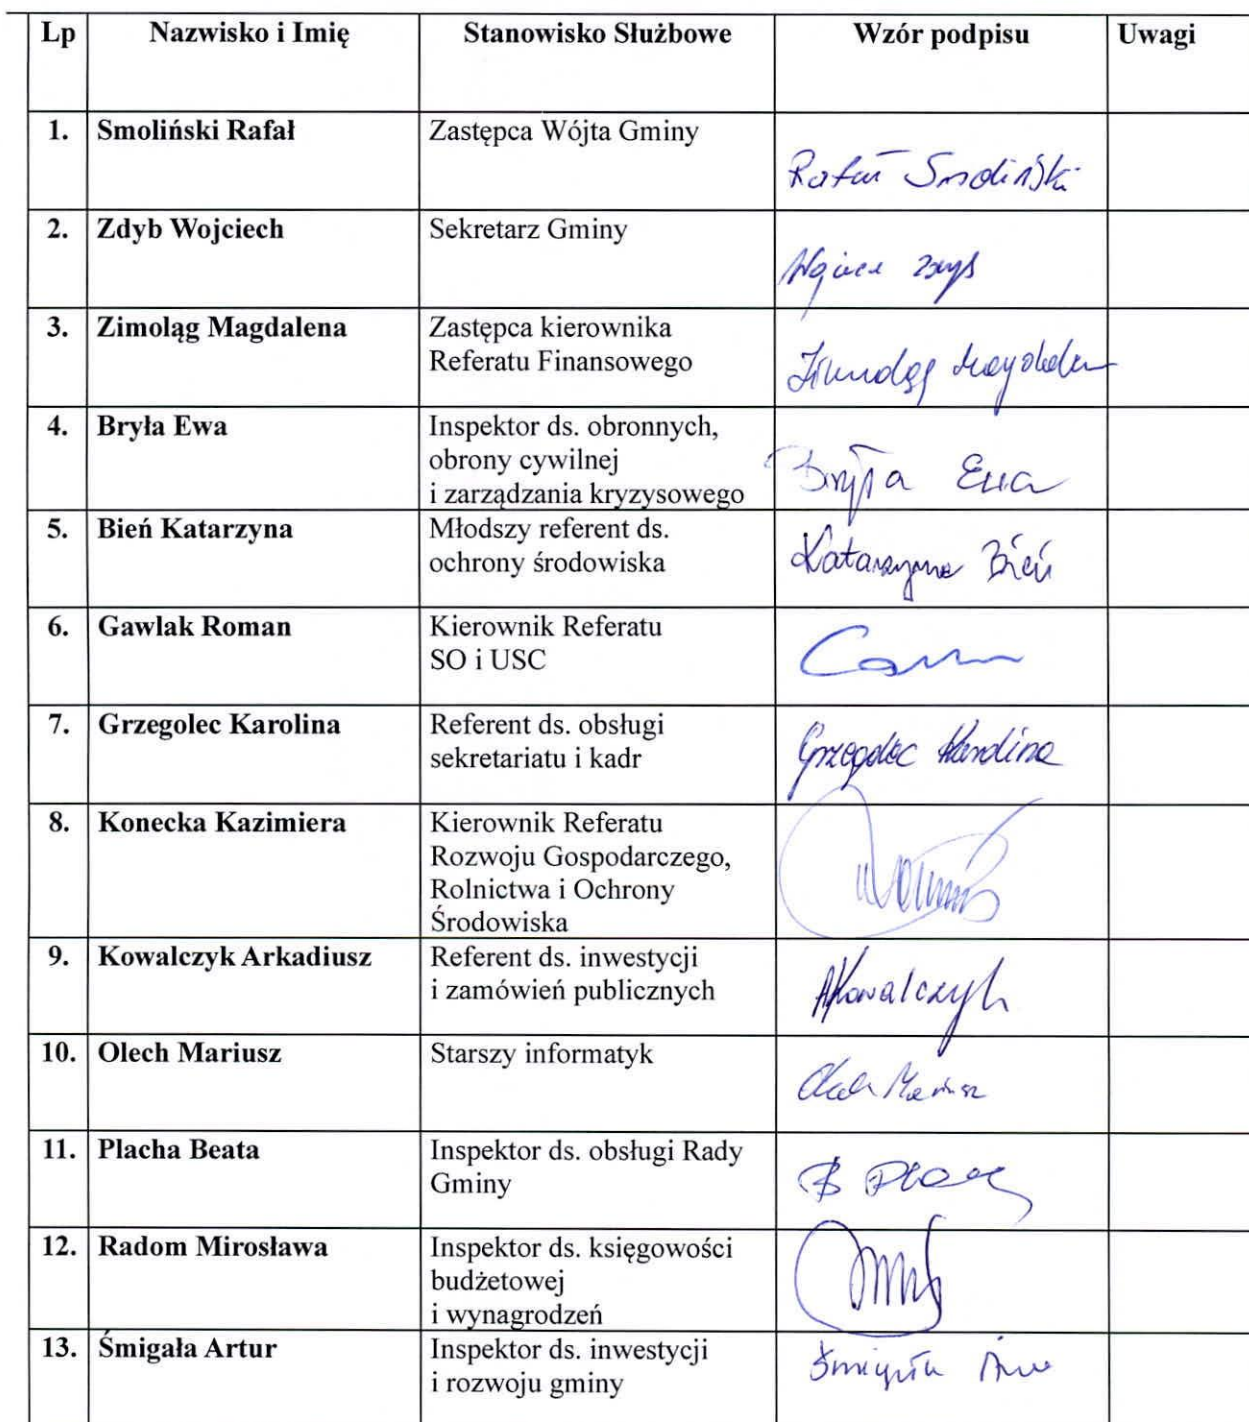 Lp Nazwisko i Imię Stanowisko Służbowe Wzór podpisu Uwagi
1. Smoliński Rafał Zastępca Wójta Gminy
Rafał Smoliński
2. Zdyb Wojciech Sekretarz Gminy
3. Zimoląg Magdalena Zastępca kierownika
Referatu Finansowego
Zimoląg Magdalena
4. Bryła Ewa Inspektor ds. obronnych,
obrony cywilnej
Bryła Ewa
i zarządzania kryzysowego
5. Bień Katarzyna Młodszy referent ds.
ochrony środowiska Katarzyna Bień
6. Gawlak Roman Kierownik Referatu
SO i USC
7. Grzegolec Karolina Referent ds. obsługi
sekretariatu i kadr Grzegolec Karolina
8. Konecka Kazimiera Kierownik Referatu
Rozwoju Gospodarczego,
Rolnictwa i Ochrony
Środowiska
9. Kowalczyk Arkadiusz Referent ds. inwestycji
i zamówień publicznych AKowalczyk
10. Olech Mariusz Starszy informatyk
Olech Mariusz
11. Placha Beata Inspektor ds. obsługi Rady
Gminy
12. Radom Mirosława Inspektor ds. księgowości
budżetowej
i wynagrodzeń
13. Śmigała Artur Inspektor ds. inwestycji
i rozwoju gminy